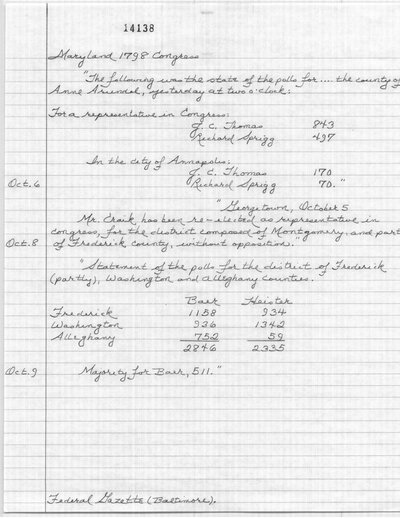 14138
Maryland 1798 Congress
"The following was the state of the polls for .... the county of
Anne Arundel, yesterday at two o'clock:
For a representative in Congress:
J. C. Thomas 843
Richard Sprigg 497
In the city of Annapolis:
J. C. Thomas 170
Oct. 6 Richard Sprigg 70."
"Georgetown, October 5
Mr. Craik has been re-elected as representative in
congress, for the district composed of Montgomery, and part
Oct. 8 of Frederick county, without opposition."
"Statement of the polls for the district of Frederick
(partly), Washington and Alleghany Counties.
Baer Heister
Frederick 1158 934
Washington 936 1342
Alleghany 752 59
2846 2335
Oct. 9 Majority for Baer, 511."
Federal Gazette (Baltimore).